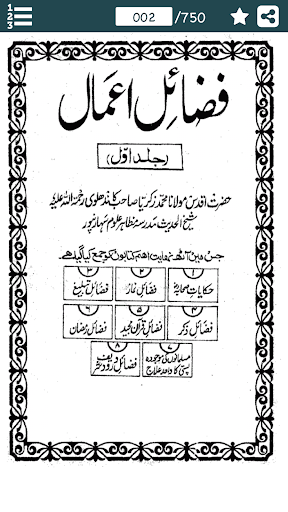 1
2
3
002 /750
فضائل اعمال
(جلد اوّل)
حضرت اقدس مولانا محمد زکریا صاحب کاندھلوی رحمۃ اللہ علیہ
شیخ الحدیث مدرسہ مظاہر علوم سہارنپور
جس میں آٹھ نہایت اہم کتابوں کو جمع کیا گیا ہے۔
۱ حکایات صحابہؓ ۲ فضائل نماز ۳ فضائل تبلیغ
۴ فضائل ذکر ۵ فضائل قرآن مجید ۶ فضائل رمضان
۷ مسلمانوں کی موجودہ پستی کا واحد علاج ۸ فضائل درود شریف